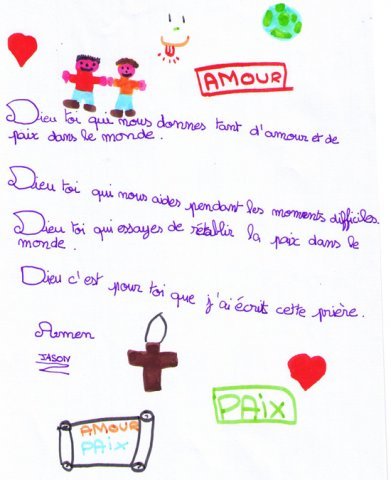 AMOUR
Dieu toi qui nous donnes tant d'amour et de
paix dans le monde.
Dieu toi qui nous aides pendant les moments difficiles.
Dieu toi qui essayes de rétablir la paix dans le
monde.
Dieu c'est pour toi que j'ai écrit cette prière.
Armen
JASON
PAIX
AMOUR
PAIX